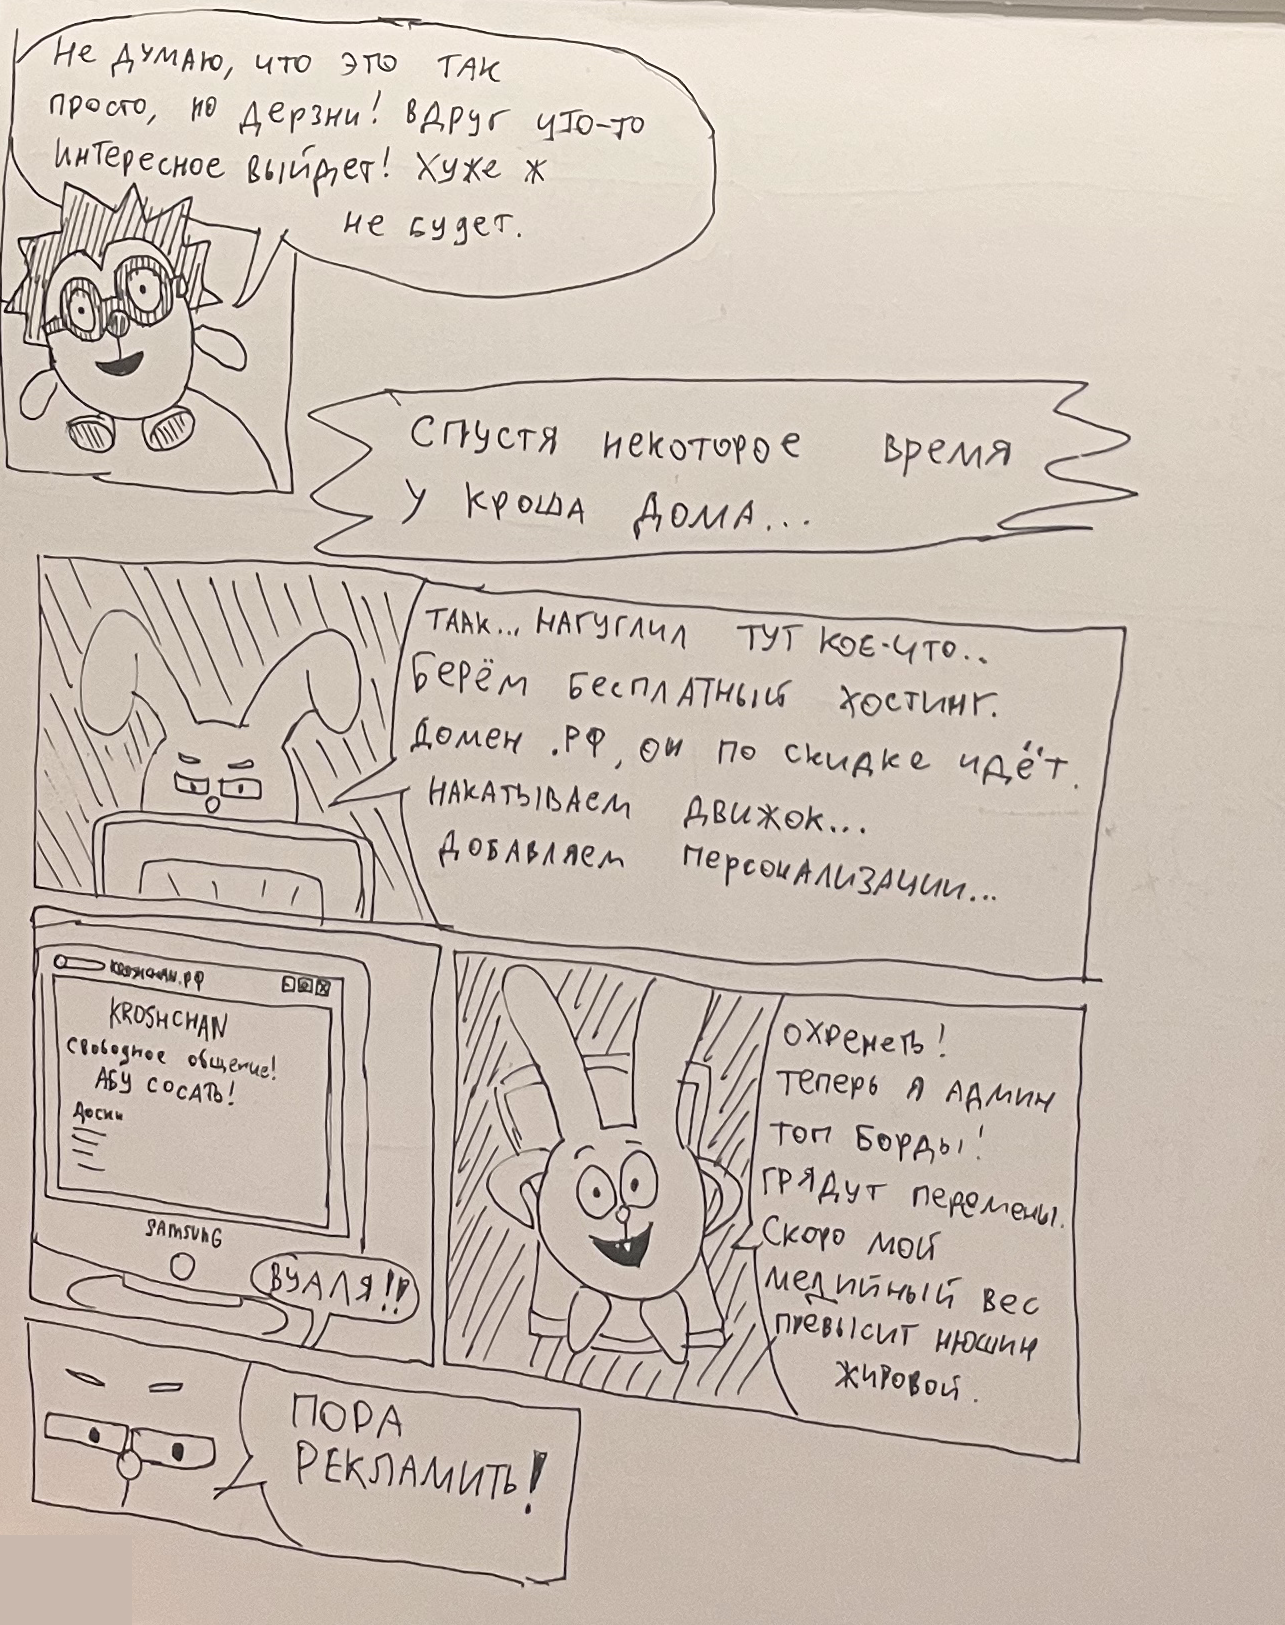 Не думаю, что это так
просто, но дерзни! Вдруг что-то
интересное выйдет! Хуже ж
не будет.
Спустя некоторое время
у Кроша дома...
Таак... нагуглил тут кое-что..
Берём бесплатный хостинг.
Домен .РФ, он по скидке идёт.
Накатываем движок...
Добавляем персонализации...
KROSHCHAN.РФ
KROSHCHAN
Свободное общение!
Абу сосать!
Доски
SAMSUNG
Вуаля!!
Охренеть!
Теперь я админ
топ борды!
Грядут перемены.
Скоро мой
медийный вес
превысит Нюшин
жировой.
Пора
рекламить!